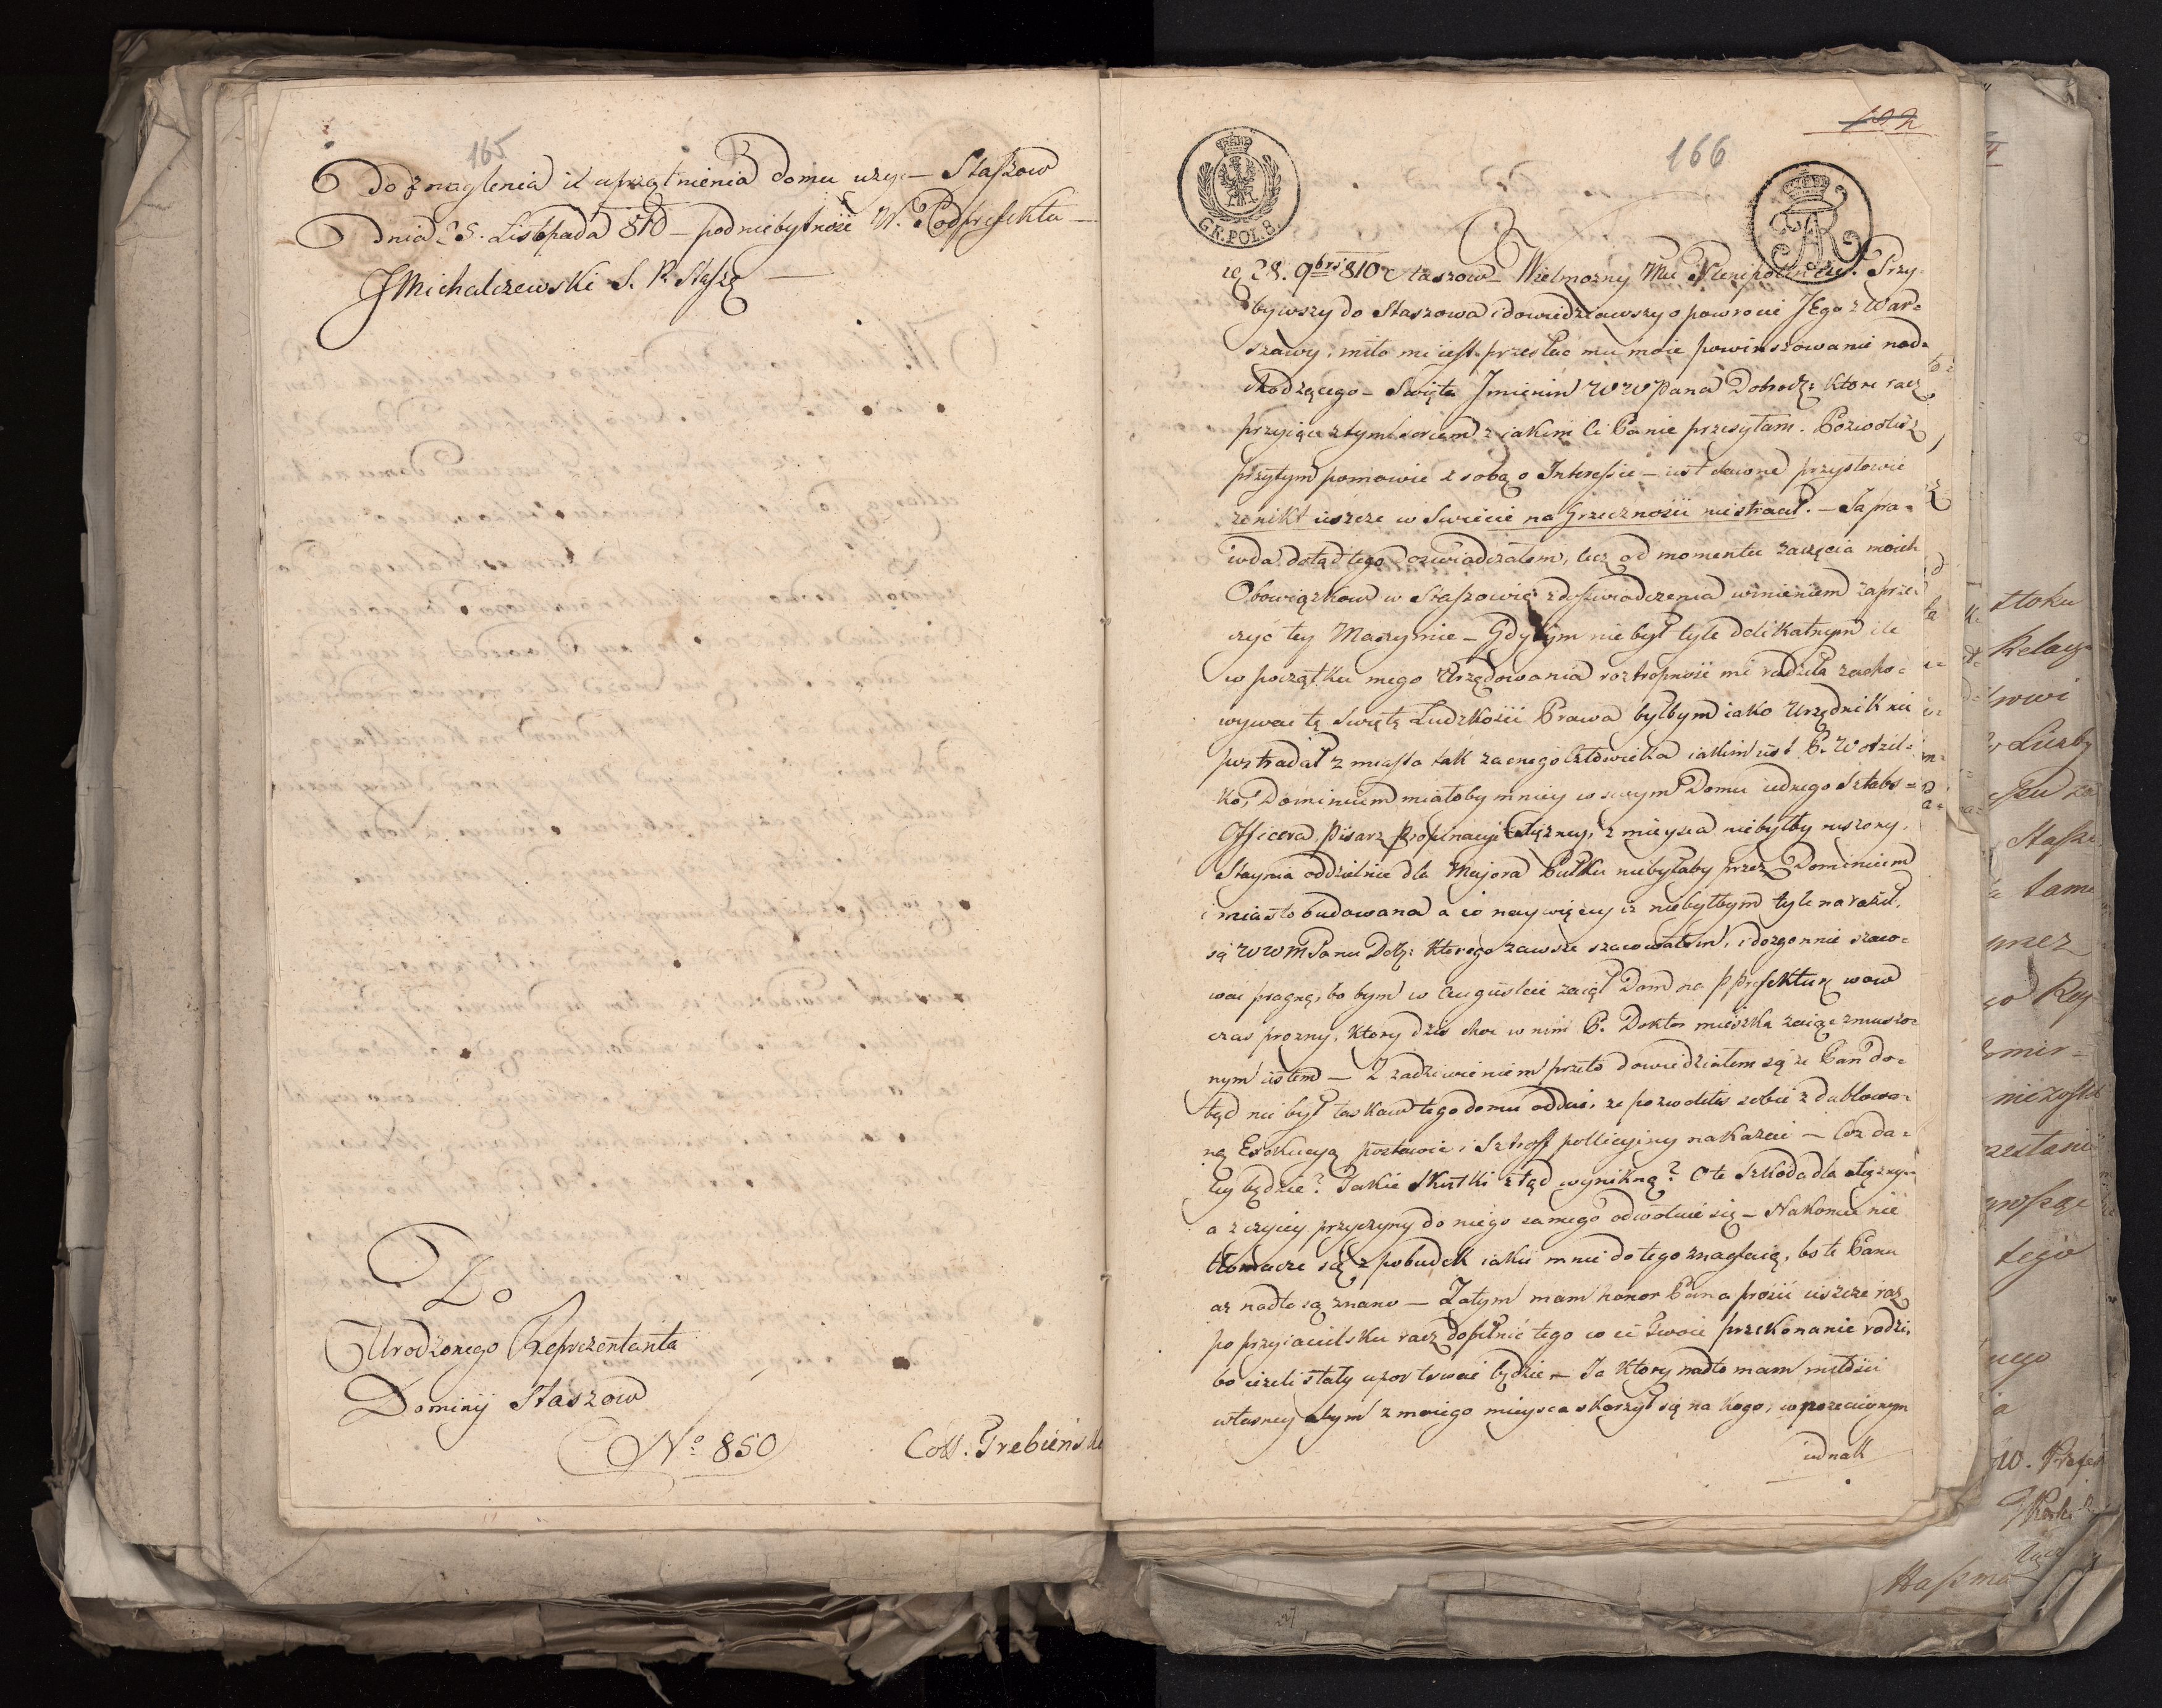 165
do znaglenia i uprzątnienia domu użyć – Staszow
dnia 28. Listopada 810 – pod niebytność W. Podprefekta –
JMichalczewski S. P. Staszo
Do
Urodzonego Reprezentanta
Dominij Staszow
No 850
Coll. Trebiensk
166
GR.POL.8.
FAR
28. 9bris 810 Staszow – Wielmożny Mci Plenipotencie. Przy-
bywszy do Staszowa i dowiedziawszy o powrocie JEgo z War-
szawy; miło mi iest przesłac mu moie powinszowanie nad-
chodzącego – Swięta Jmienin WWPana Dobrodz: ktore racz
przyiąc z tym sercem z iakim Ci Panie przesyłam. Pozwolisz
przytym pomowic z sobą o Interessie – iest dawne przysłowie
ze nikt ieszcze w Swiecie na Grzecznosci niestracił. – Ja pra-
wda dotąd tego doswiadczałem, lecz od momentu zaczęcia moich
Obowiązkow w Staszowie z doswiadczenia winienem zaprze-
czyc tey Maxymie – Gdybym nie był tyle delikatnym ile
w początku mego Urzędowania roztropnosc mi radziła zacho-
wywac tę swiętą Ludzkosci Prawa byłbym iako Urzędnik nie
postradał z miasta tak zacnego Człowieka iakim iest P. Wodzil-
ko, Dominium miałoby mniey w swym Domu iednego Sztabs-
Officera, Pisarz Propinacyi z mieysca niebyłby ruszony,
Staynia oddzielnie dla Majora Pułku niebyłaby przez Dominium
i miasto budowana a co naywięcey iz niebyłbym tyle naraził
się WWMPanu Dobr: ktorego zawsze szacowałem, i dozgonnie szaco-
wac pragnę, bo bym w Auguscie zaiął Dom na Pprefekturę wow
czas prozny, ktory dzis choc w nim P. Doktor mieszka zaiąc zmuszo-
nym iestem – Z zadziwieniem przeto dowiedziałem się ze Pan do-
tąd nie był łaskaw tego domu oddac, ze pozwoliłes sobie zdublowa-
ną Exekucyą postawic i Sztroff policyjny nakazac – Coz da-
ley będzie? Jakie Skutki ztąd wynikną? Oto Szkoda dla
a z czyiey przyczyny do niego samego odwołuie się – Nakoniec nie
tłomaczę się z pobudek iakie mnie do tego znaglaią, bo te Panu
az nadto są znane – Zatym mam honor Pana prosic ieszcze raz
po przyiacielsku racz dopełnic tego co ci Twoie przekonanie radzi,
bo ieżeli stały upor trwac będzie – Ja ktory nadto mam miłosci
własney abym z moiego mieysca skarzył się na kogo, w przeciwnym
iednak